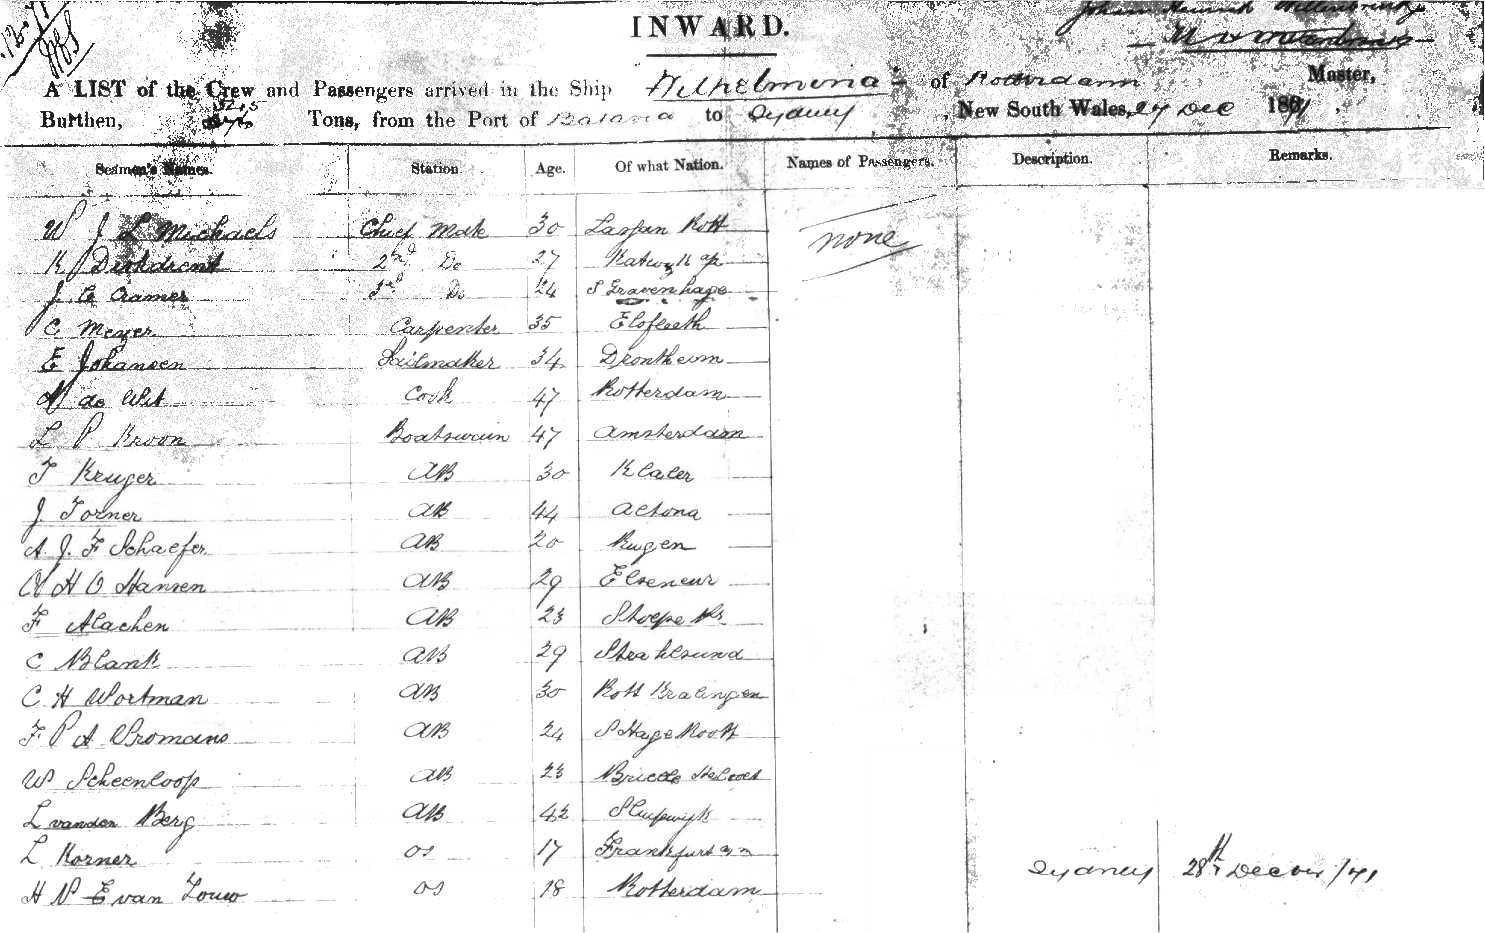 INWARD.
A LIST of the Crew and Passengers arrived in the Ship Wilhelmina of Rotterdam Master,
Burthen, Tons, from the Port of Batavia to Sydney, New South Wales, 27 Dec 1871
Seamen's Names. Station. Age. Of what Nation. Names of Passengers. Description. Remarks.
W J L Michaels Chief Mate 30 Rott none
K 2nd Do 27
J C Cramer 3rd Do 24 S Gravenhage
C Meyer Carpenter 35 Elsfleth
E Johansen Sailmaker 34 Drontheim
de Wit Cook 47 Rotterdam
L P Kroon Boatswain 47 Amsterdam
F Kruger AB 30
J Torner AB 44 Altona
A J F Schaefer AB 20 Rugen
H O Hansen AB 29 Elseneur
F Alachen AB 23
C Blank AB 29 Strahlsund
C H Wortman AB 30 Rott Kralingen
F P A Vromans AB 24 S Hage Rott
W Scheenloop AB 23
L vanden Berg AB 42
L Korner OS 17 Frankfurt Sydney 28th Decr /71
H P E van OS 18 Rotterdam